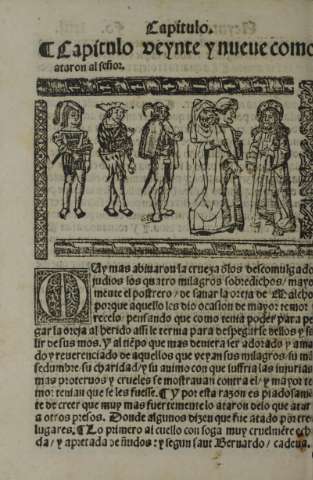 Capitulo.
¶ Capitulo veynte y nueue como
ataron al señor.
MUy mas abiuaron la crueza dlos descomulgado
judios los quatro milagros sobredichos/ mayo
mente el postrero/ de sanar la oreja de Malcho
porque aquello les dio ocasion de mayor temor
recelo/ pensando que como tenia poder para pe
gar la oreja al herido assi le ternia para despegarse dellos y sa
lir de sus mos. Y al tiẽpo que mas deuiera ser adorado y ama
do y reuerenciado de aquellos que veyan sus milagros/ su mã
sedumbre/ su charidad/ y su animo con que suffria las injurias
mas proteruos y crueles se mostrauan contra el/ y mayor te
mor tenian que se les fuesse. ¶ Y por esta razon es piadosamẽ
te de creer que muy mas fuertemente lo ataron delo que atar
a otros presos. Donde algunos dizen que fue atado por tres
lugares. ¶ Lo primero al cuello con soga muy cruelmẽte
da/ y apretada de ñudos: y segun sant Bernardo/ cadena.